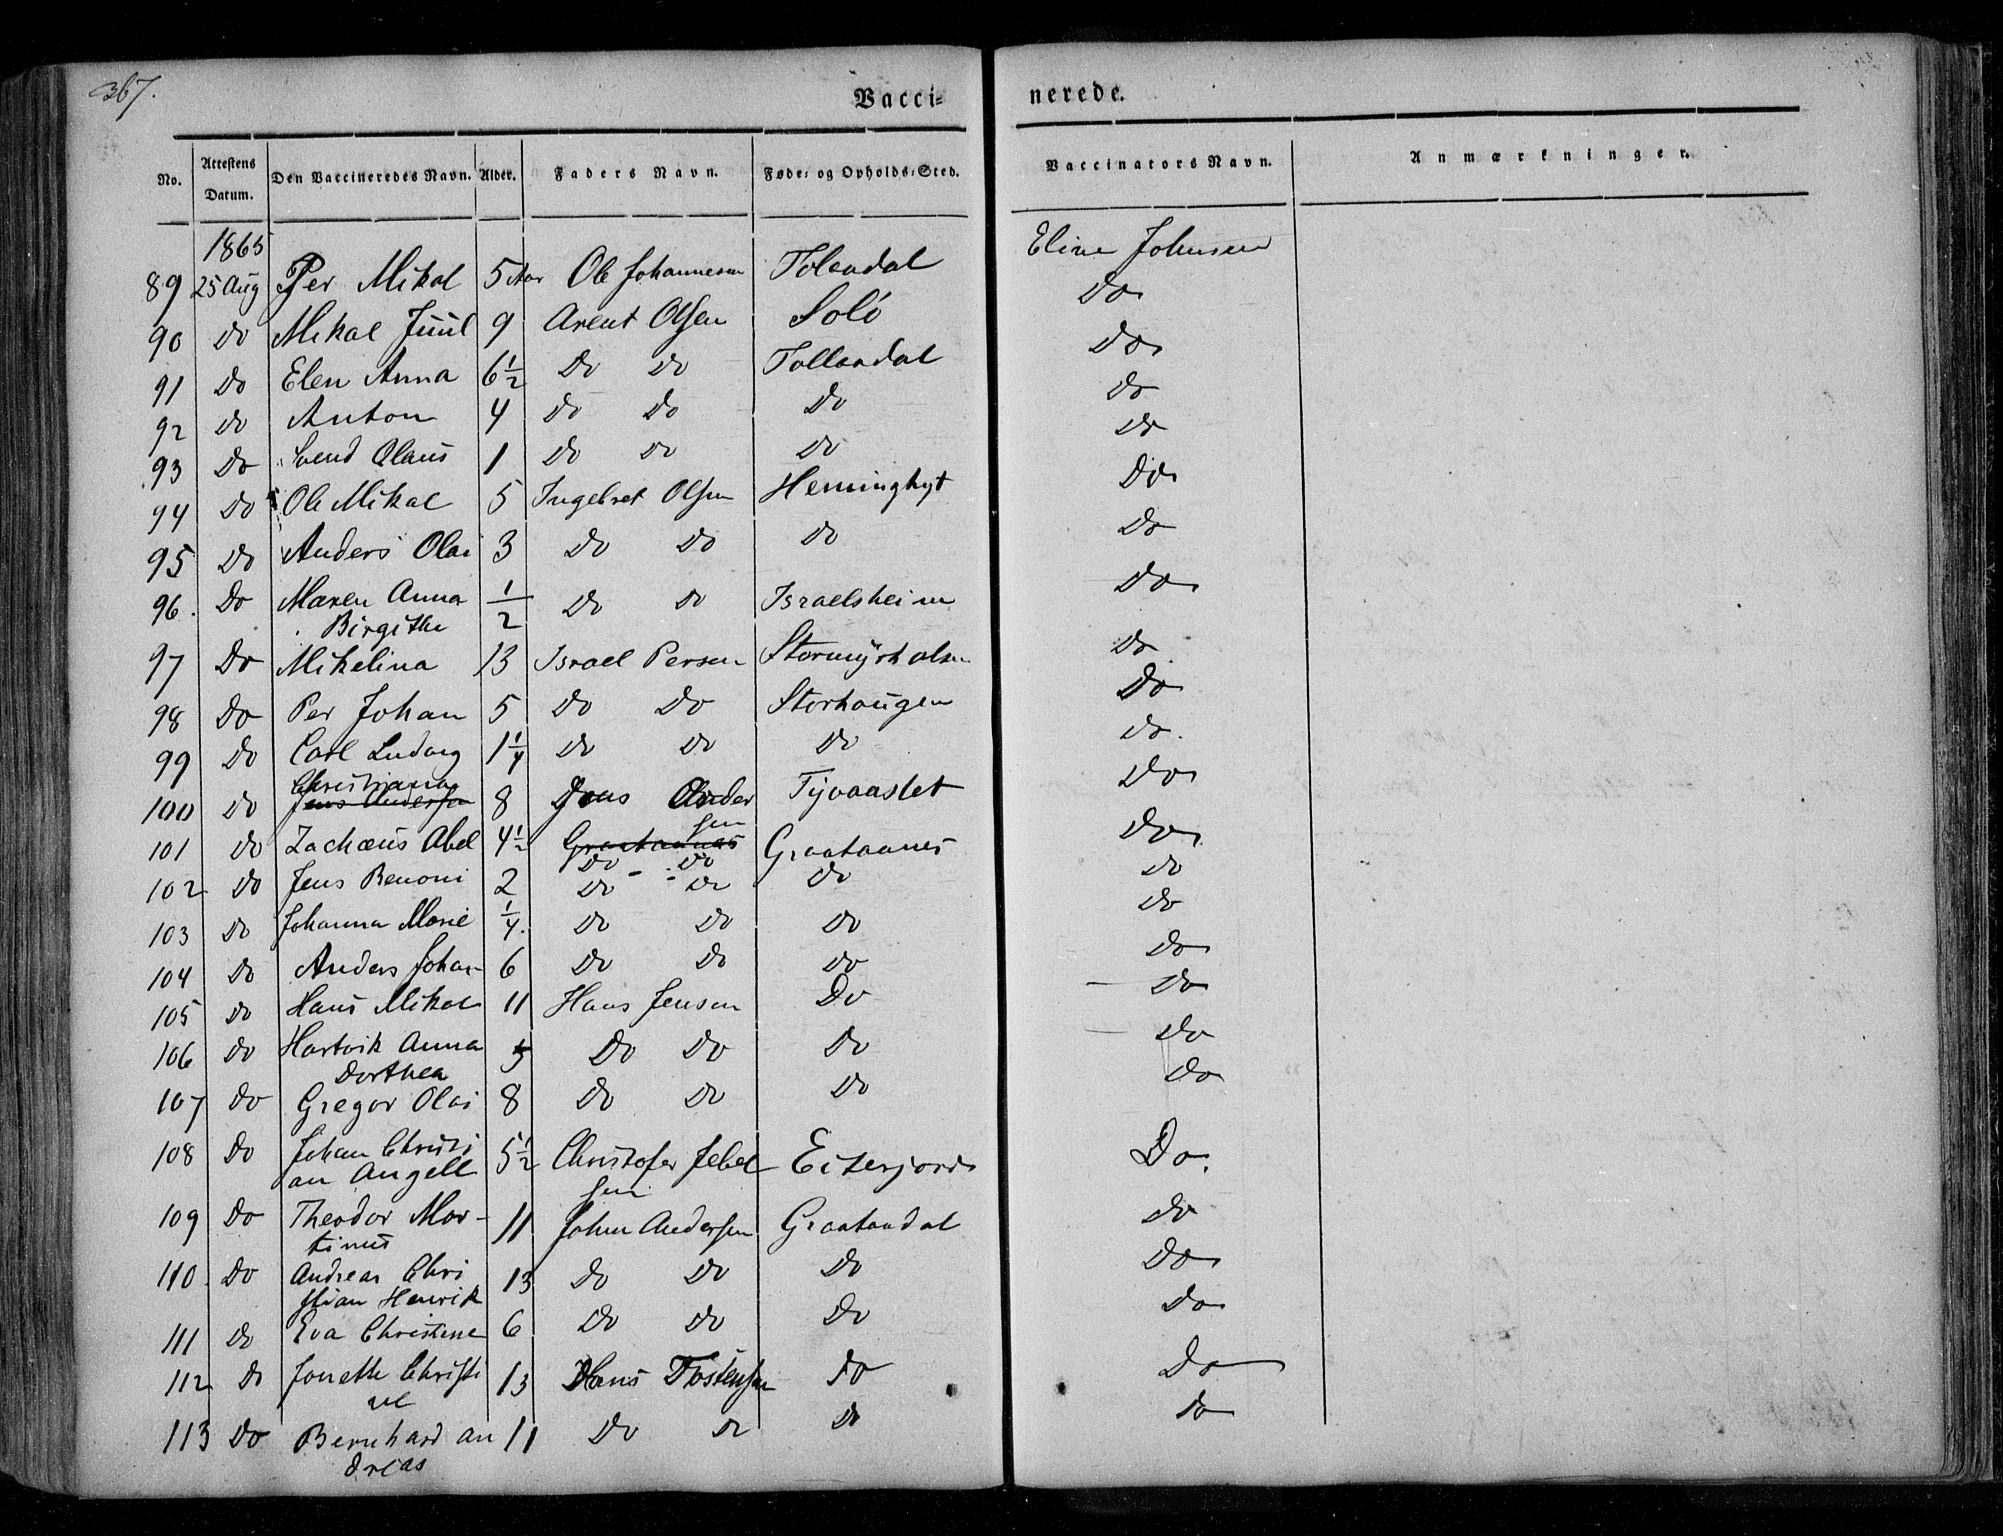 367.
Vacci= nerede.
No. Attestens Datum. Den Vaccineredes Navn. Alder. Faders Navn. Føde= og Opholds=Sted. Vaccinators Navn. Anmærkninger.
1865
89 25 Aug Per Mikal 5 Aar Ole Johannesen Tolaadal Eline Johnsen
90 Do Mikal Juul 9 Arent Olsen Solö Do
91 Do Elen Anna 6½ Do Do Tollaadal Do
92 Do Anton 4 Do Do Do Do
93 Do Svend Olaus 1 Do Do Do Do
94 Do Ole Mikal 5 Ingebret Olsen Heminghyt Do
95 Do Anders Olai 3 Do Do Do Do
96. Do Maren Anna ½ Do Do Israelsheim Do
Birgithe
97 Do Mikelina 13 Israel Persen Stormyrholsen Do
98 Do Per Johan 5 Do Do Storhaugen Do
99 Do Carl Ludvig 1¼ Do Do Do Do.
Christiana
100 Do Jens Andersen 8 Jens Ander Tjvaaslet Do
sen
101 Do Zachæus Abel 4½ Graataanes Graataanes Do
Do - Do
102 Do Jens Benoni 2 Do Do Do Do
103 Do Johanna Marie ¼. Do Do Do Do
104 Do Anders Johan 6 Do Do Do Do
105 Do Hans Mikal 11 Hans Jensen Do Do
106 Do Hartvik Anna 5 Do Do Do Do
Dorthea
107 Do Gregor Olai 8 Do Do Do Do
108 Do Johan Christi 5½ Christofer Jebel Eiterjord Do.
an Angell sen
109 Do Theodor Mar- 11 John Andersen Graataadal Do
tinus
110. Do Andreas Chri 13 Do Do Do Do
stian Henrik
111 Do Eva Christine 6 Do Do Do Do
112 Do Jonette Christi 13 Hans Tostensen Do Do
ne
113 Do Bernhard An 11 Do Do Do Do
dreas